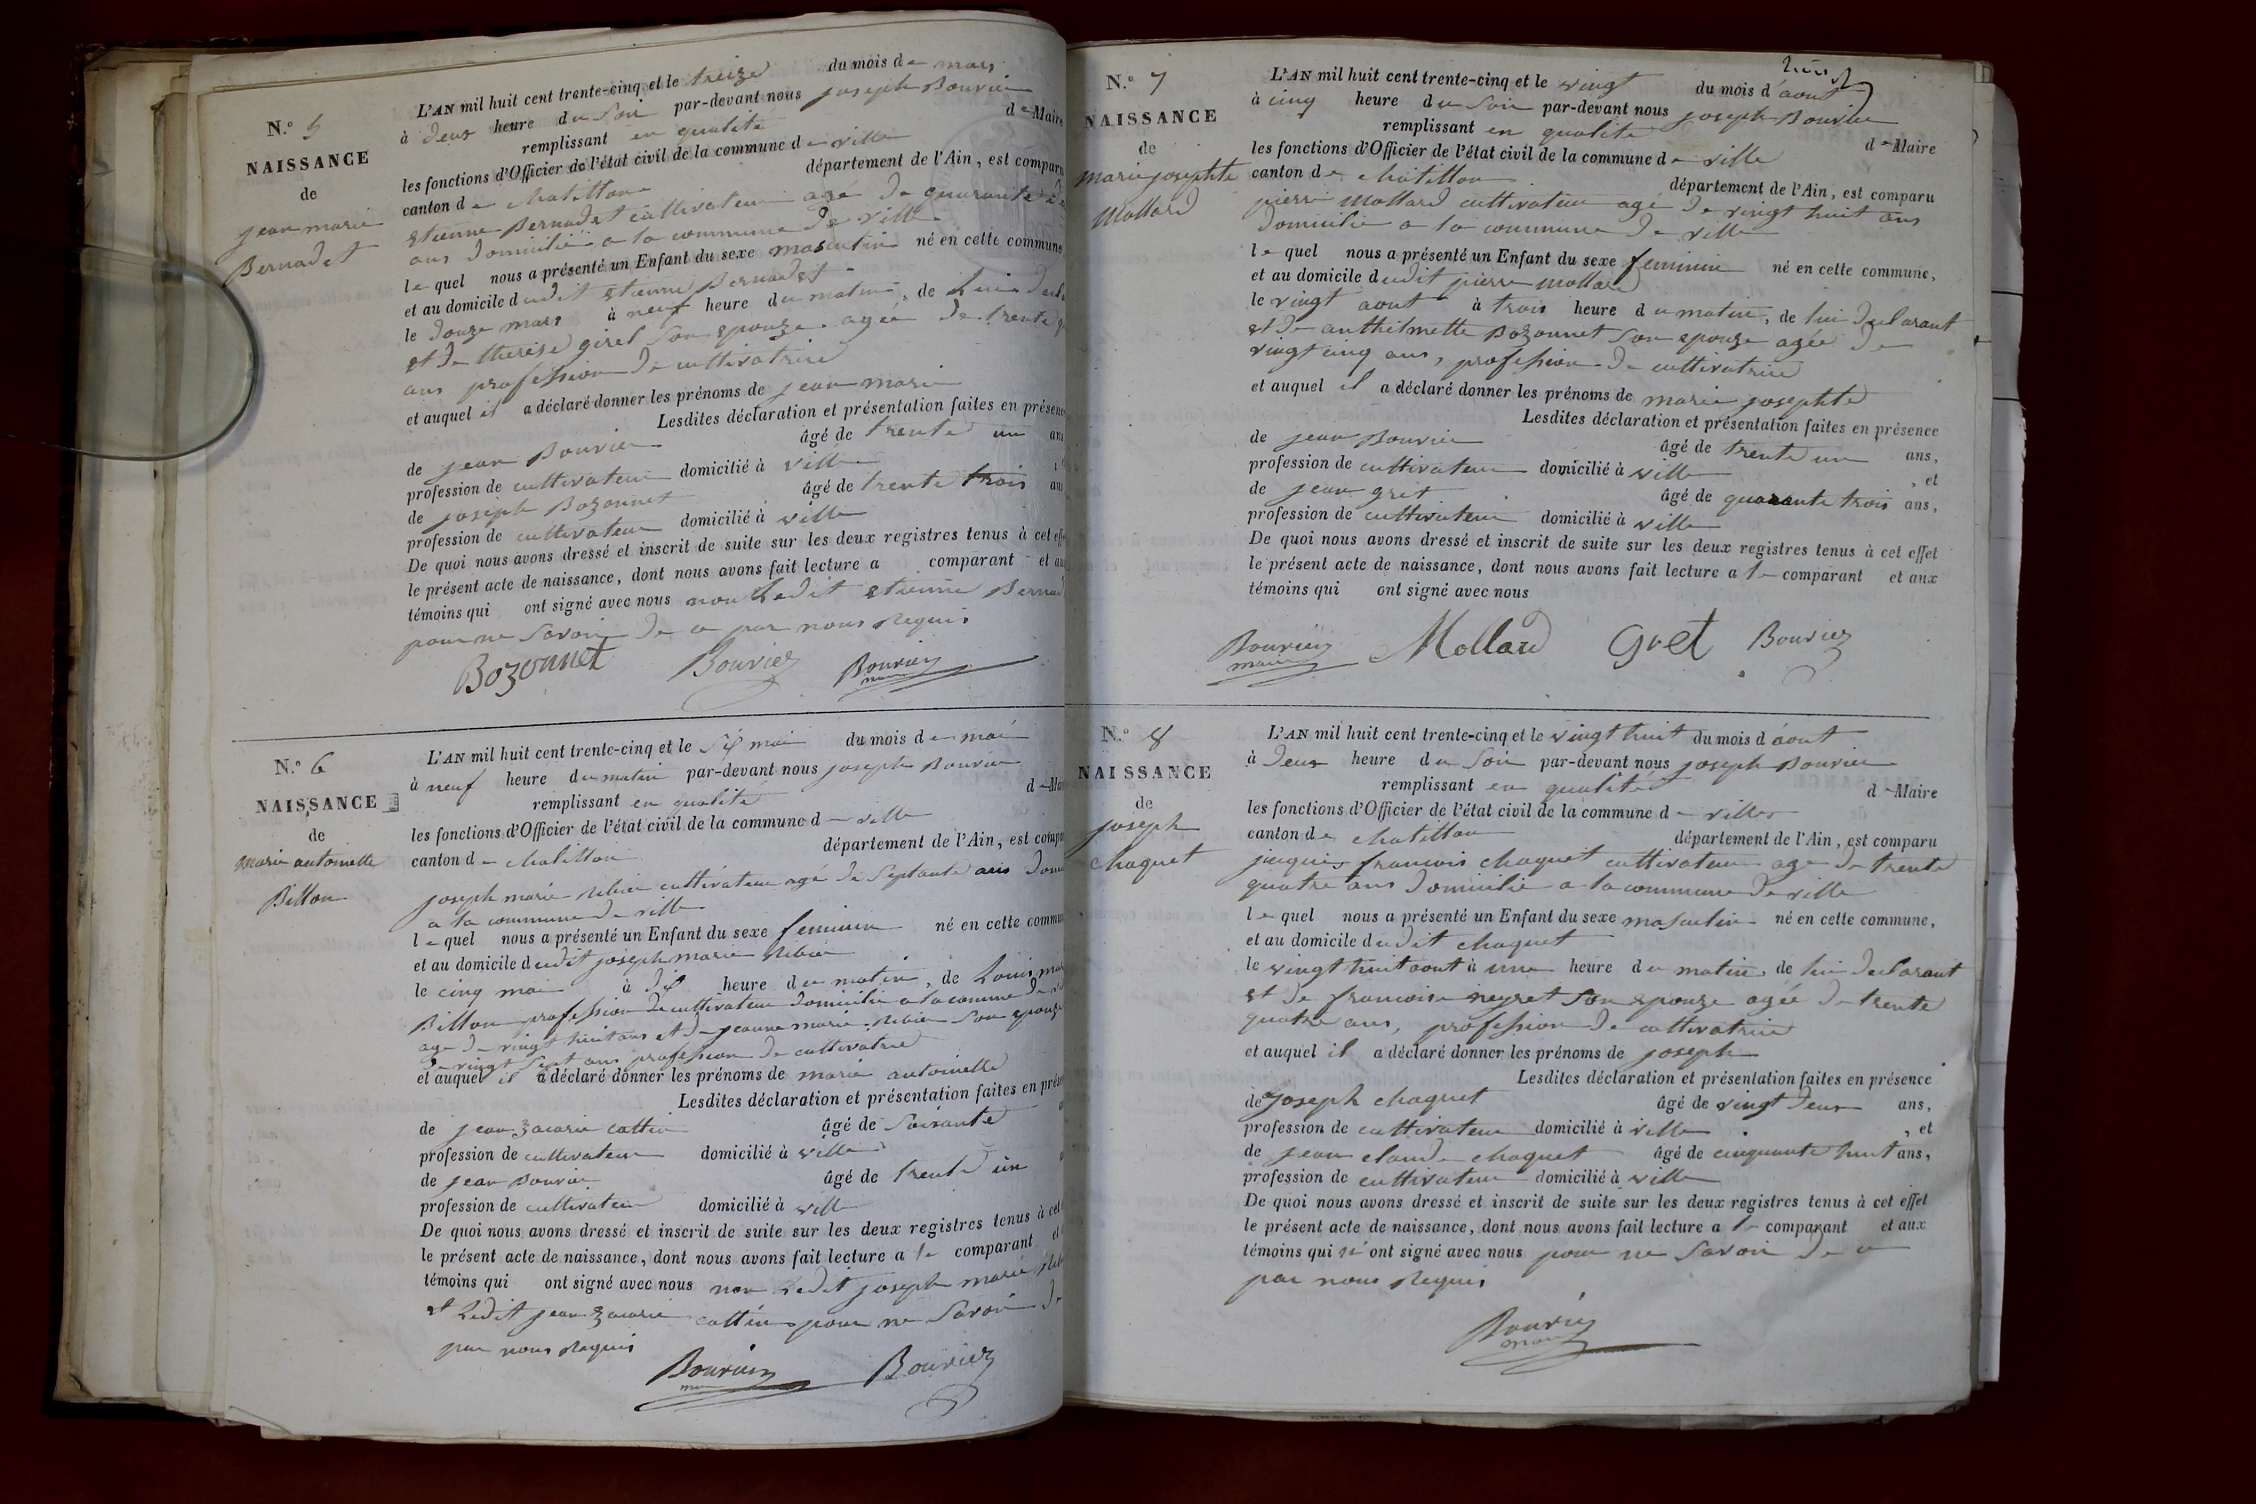 N.o 5
NAISSANCE
de
jean marie
Bernadet
L'AN mil huit cent trente-cinq et le treize du mois de mars
à deux heure du soir par-devant nous joseph Bouvier
remplissant en qualité de Maire
les fonctions d'Officier de l'état civil de la commune de ville
canton de chatillon département de l'Ain, est comparu
etienne Bernadet cultivateur age de quarante
ans domicilié a la commune de ville
lequel nous a présenté un Enfant du sexe masculin né en cette commune
et au domicile dudit etienne Bernadet
le douze mars à neuf heure du matin, de lui
et de therese girel son epouze agée de trente
ans profession de cultivatrice
et auquel il a déclaré donner les prénoms de jean marie
Lesdites déclaration et présentation faites en
de jean Bouvier âgé de trente un ans
profession de cultivateur domicilié à ville
de joseph Bozonnet âgé de trente trois
profession de cultivateur domicilié à ville
De quoi nous avons dressé et inscrit de suite sur les deux registres tenus à cet
le présent acte de naissance, dont nous avons fait lecture a comparant et
témoins qui ont signé avec nous non Ledit etienne
pour ne savoir de ce par nous Requis
Bozonnet Bouvier Bouvier
maire
N.o 6
NAISSANCE
de
marie antoinette
Billon
L'AN mil huit cent trente-cinq et le six mai du mois de mai
à neuf heure du matin par-devant nous joseph Bouvier
remplissant en qualité de
les fonctions d'Officier de l'état civil de la commune de ville
canton de chatillon département de l'Ain, est
joseph marie cultivateur agé de septante ans
a la commune de ville
lequel nous a présenté un Enfant du sexe feminin né en cette
et au domicile dudit joseph marie
le cinq mai à dix heure du matin, de Louis
Billon profession de cultivateur domicilié a la comune de
age de vingt huit ans et de jeanne marie son epouze
de vingt sept ans profession de cultivatrice
et auquel il a déclaré donner les prénoms de marie antoinette
Lesdites déclaration et présentation faites en
de jean zacarie cattin âgé de soixante
profession de cultivateur domicilié à ville
de jean Bouvier âgé de trente un
profession de cultivateur domicilié à ville
De quoi nous avons dressé et inscrit de suite sur les deux registres tenus à cet
le présent acte de naissance, dont nous avons fait lecture a le comparant et
témoins qui ont signé avec nous non Ledit joseph marie
et Ledit jean zacarie cattin pour ne savoir de
par nous Requis
Bouvier Bouvier
N.o 7
NAISSANCE
de
marie josephte
Mollard
L'AN mil huit cent trente-cinq et le vingt du mois d'aout
à cinq heure du soir par-devant nous joseph Bouvier
remplissant en qualité de Maire
les fonctions d'Officier de l'état civil de la commune de ville
canton de chatillon département de l'Ain, est comparu
pierre Mollard cultivateur agé de vingt huit ans
domicilié a la commune de ville
lequel nous a présenté un Enfant du sexe feminin né en cette commune,
et au domicile dudit pierre Mollard
le vingt aout à trois heure du matin, de lui declarant
et de anthelmette Bozonnet son epouze agée de
vingt cinq ans, profession de cultivatrice
et auquel il a déclaré donner les prénoms de marie josephte
Lesdites déclaration et présentation faites en présence
de jean Bouvier âgé de trente un ans,
profession de cultivateur domicilié à ville, et
de jean gret âgé de quarante trois ans,
profession de cultivateur domicilié à ville
De quoi nous avons dressé et inscrit de suite sur les deux registres tenus à cet effet
le présent acte de naissance, dont nous avons fait lecture a le comparant et aux
témoins qui ont signé avec nous
Bouvier Mollard Gret Bouvier
maire
N.o 8
NAISSANCE
de
joseph
chaquet
L'AN mil huit cent trente-cinq et le vingt huit du mois d'aout
à deux heure du soir par-devant nous joseph Bouvier
remplissant en qualité de Maire
les fonctions d'Officier de l'état civil de la commune de ville
canton de chatillon département de l'Ain, est comparu
jacques francois chaquet cultivateur age de trente
quatre ans domicilié a la commune de ville
lequel nous a présenté un Enfant du sexe masculin né en cette commune,
et au domicile dudit chaquet
le vingt huit aout à une heure du matin, de lui declarant
et de francoise neyret son epouze agée de trente
quatre ans, profession de cultivatrice
et auquel il a déclaré donner les prénoms de joseph
Lesdites déclaration et présentation faites en présence
de joseph chaquet âgé de vingt deux ans,
profession de cultivateur domicilié à ville, et
de jean claude chaquet âgé de cinquante huit ans,
profession de cultivateur domicilié à ville
De quoi nous avons dressé et inscrit de suite sur les deux registres tenus à cet effet
le présent acte de naissance, dont nous avons fait lecture a le comparant et aux
témoins qui ni ont signé avec nous pour ne savoir de ce
par nous Requis
Bouvier
maire